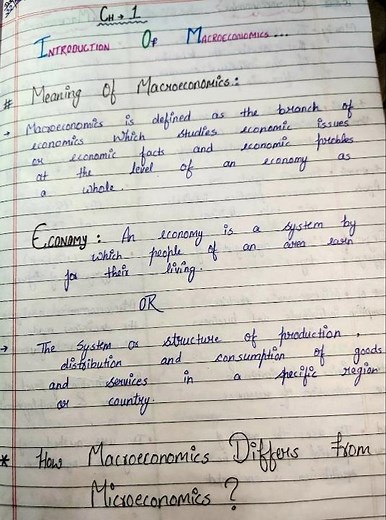 CH → 1
INTRODUCTION OF MACROECONOMICS...
# Meaning Of Macroeconomics:
→ Macroeconomics is defined as the branch of
economics which studies economic issues
or economic facts and economic problms
at the level of an economy as
a whole.
ECONOMY: An economy is a system by
which people of an area earn
for their living.
OR
→ The system or structure of production,
distribution and consumption of goods
and services in a specific region
or country.
* How Macroeconomics Differs from
Microeconomics?